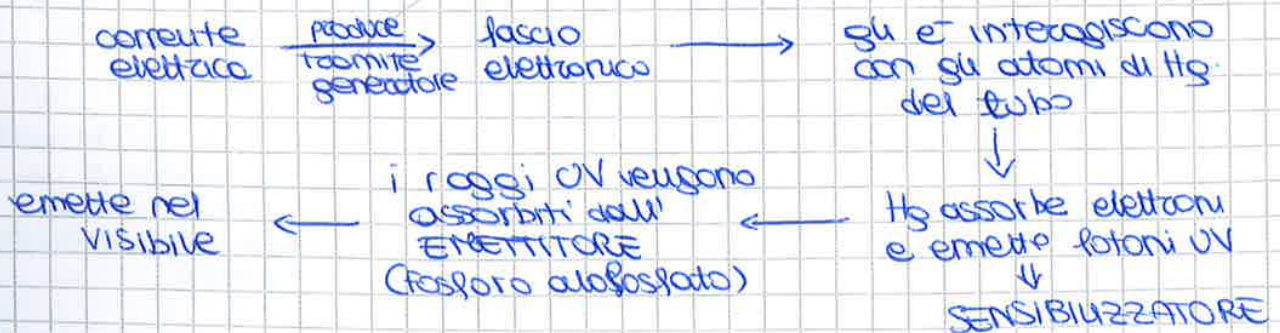 corrente
elettrica
produce
tramite
generatore
fascio
elettronico
gli e⁻ interagiscono
con gli atomi di Hg
del tubo
Hg assorbe elettroni
e emette fotoni UV
SENSIBILIZZATORE
i raggi UV vengono
assorbiti dall'
EMETTITORE
(fosforo alofosfato)
emette nel
VISIBILE